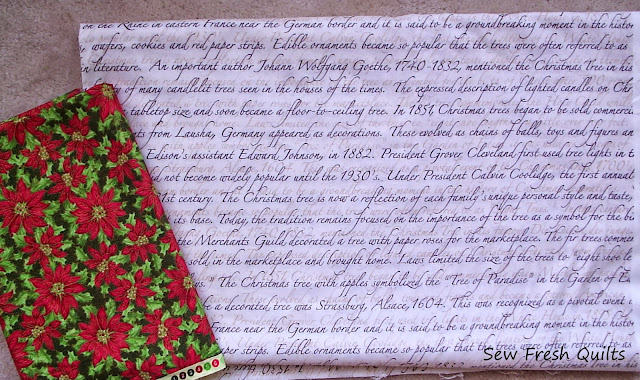 on the Rhine in eastern France near the German border and it is said to be a groundbreaking moment in the histor
wafers, cookies and red paper strips. Edible ornaments became so popular that the trees were often referred to as
n literature. An important author Johann Wolffgang Goethe, 1740-1832, mentioned the Christmas Tree in his
of many candlelit trees seen in the houses of the times. The expressed description of lighted candles on Chri
tabletop size and soon became a floor-to-ceiling tree. In 1851, Christmas trees began to be sold commerci
from Lauscha, Germany appeared as decorations. These evolved as chains of balls, toys and figures an
Edison's assistant Edward Johnson, in 1882. President Grover Cleveland first used tree lights in t
not become widely popular until the 1930's. Under President Calvin Coolidge, the first annual
1st century. The Christmas tree is now a reflection of each family's unique personal style and taste,
its base. Today, the tradition remains focused on the importance of the tree as a symbol for the bi
the Merchants Guild decorated a tree with paper roses for the marketplace. The fir trees comme
sold in the marketplace and brought home. Laws limited the size of the trees to "eight shoe le
" The Christmas tree with apples symbolized the "Tree of Paradise" in the Garden of Ed
a decorated tree was Strassburg, Alsace, 1604. This was recognized as a pivotal event i
France near the German border and it is said to be a groundbreaking moment in the histo
paper strips. Edible ornaments became so popular that the trees were often referred to as
Sew Fresh Quilts